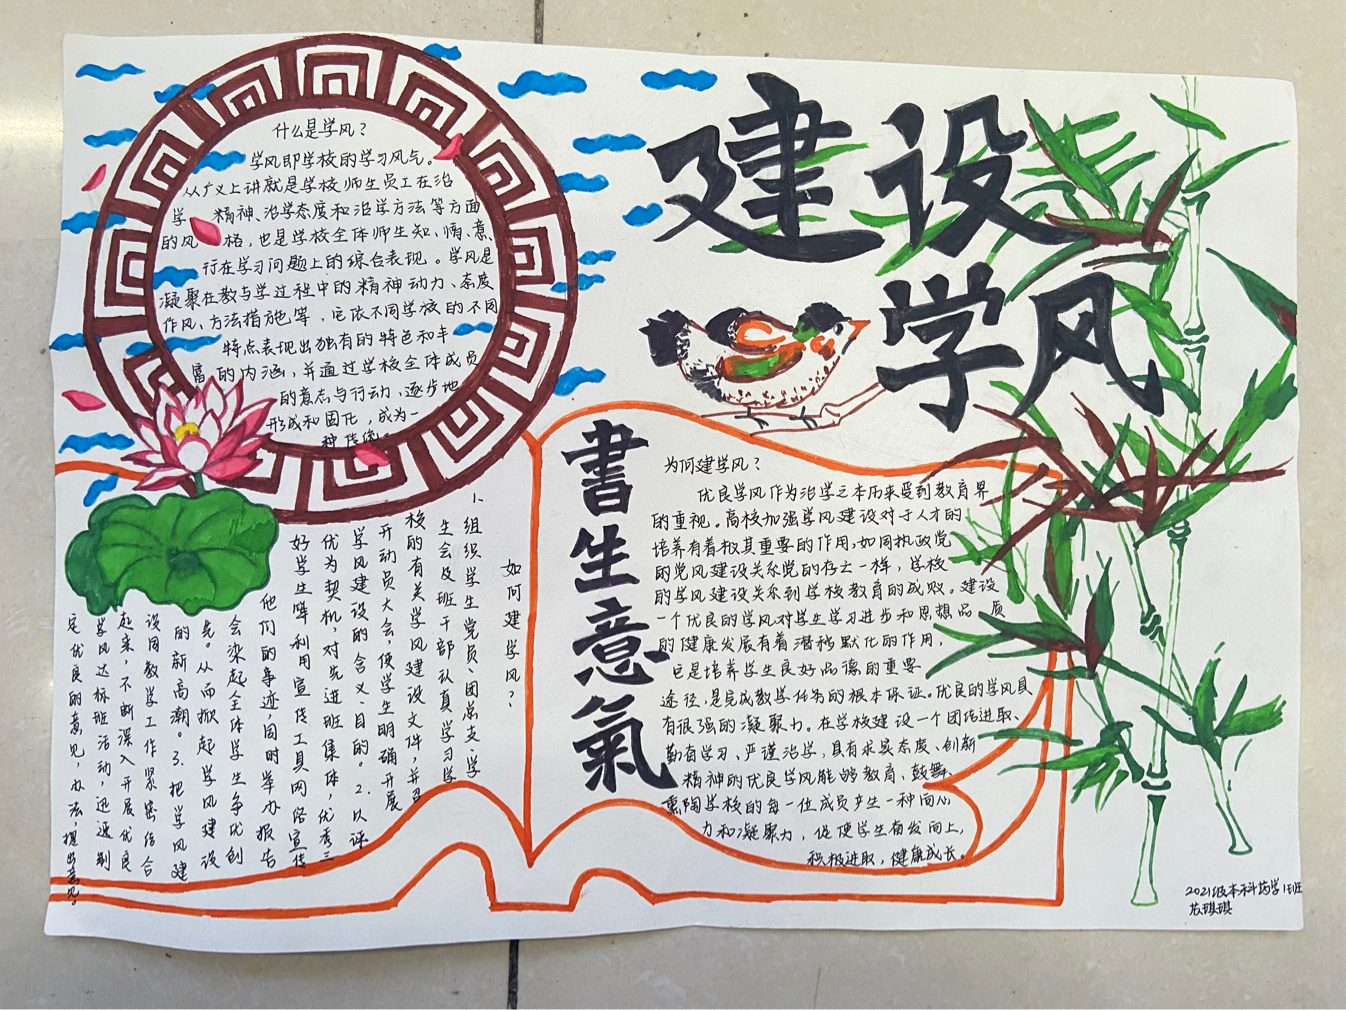 建设
学风
什么是学风？
学风即学校的学习风气。
从广义上讲就是学校师生员工在治
学 精神、治学态度和治学方法等方面
的风 格，也是学校全体师生知、情、意、
行在学习问题上的综合表现。学风是
凝聚在教与学过程中的精神动力、态度
作风、方法措施等，它依不同学校的不同
特点表现出独有的特色和丰
富的内涵，并通过学校全体成员
的意志与行动、逐步地
形成和固化，成为一
种传统。
書生意氣
为何建学风？
优良学风作为治学之本历来受到教育界
的重视。高校加强学风建设对于人才的
培养有着极其重要的作用，如同执政党
的党风建设关系党的存亡一样，学校
的学风建设关系到学校教育的成败。建设
一个优良的学风对学生学习进步和思想品 质
的健康发展有着潜移默化的作用，
它是培养学生良好品德的重要
途径，是完成教学任务的根本保证。优良的学风具
有很强的凝聚力。在学校建设一个团结进取、
勤奋学习、严谨治学，具有求实态度、创新
精神的优良学风能够教育、鼓舞、
熏陶学校的每一位成员产生一种向心
力和凝聚力，促使学生奋发向上，
积极进取，健康成长。
如何建学风？
1.组织学生党员、团总支、学
生会及班干部认真学习学
校的有关学风建设文件，并召
开动员大会，使学生明确开展
学风建设的含义、目的。2.以评
优为契机，对先进班集体，优秀三
好学生等利用宣传工具网络宣传
他们的事迹，同时举办报告
会染起全体学生争优创
先。从而掀起学风建设
的新高潮。3.把学风建
设同教学工作紧密结合
起来，不断深入开展优良
学风达标班活动，迅速制
定优良的意见，办法，提出意见。
2021级本科药学1班